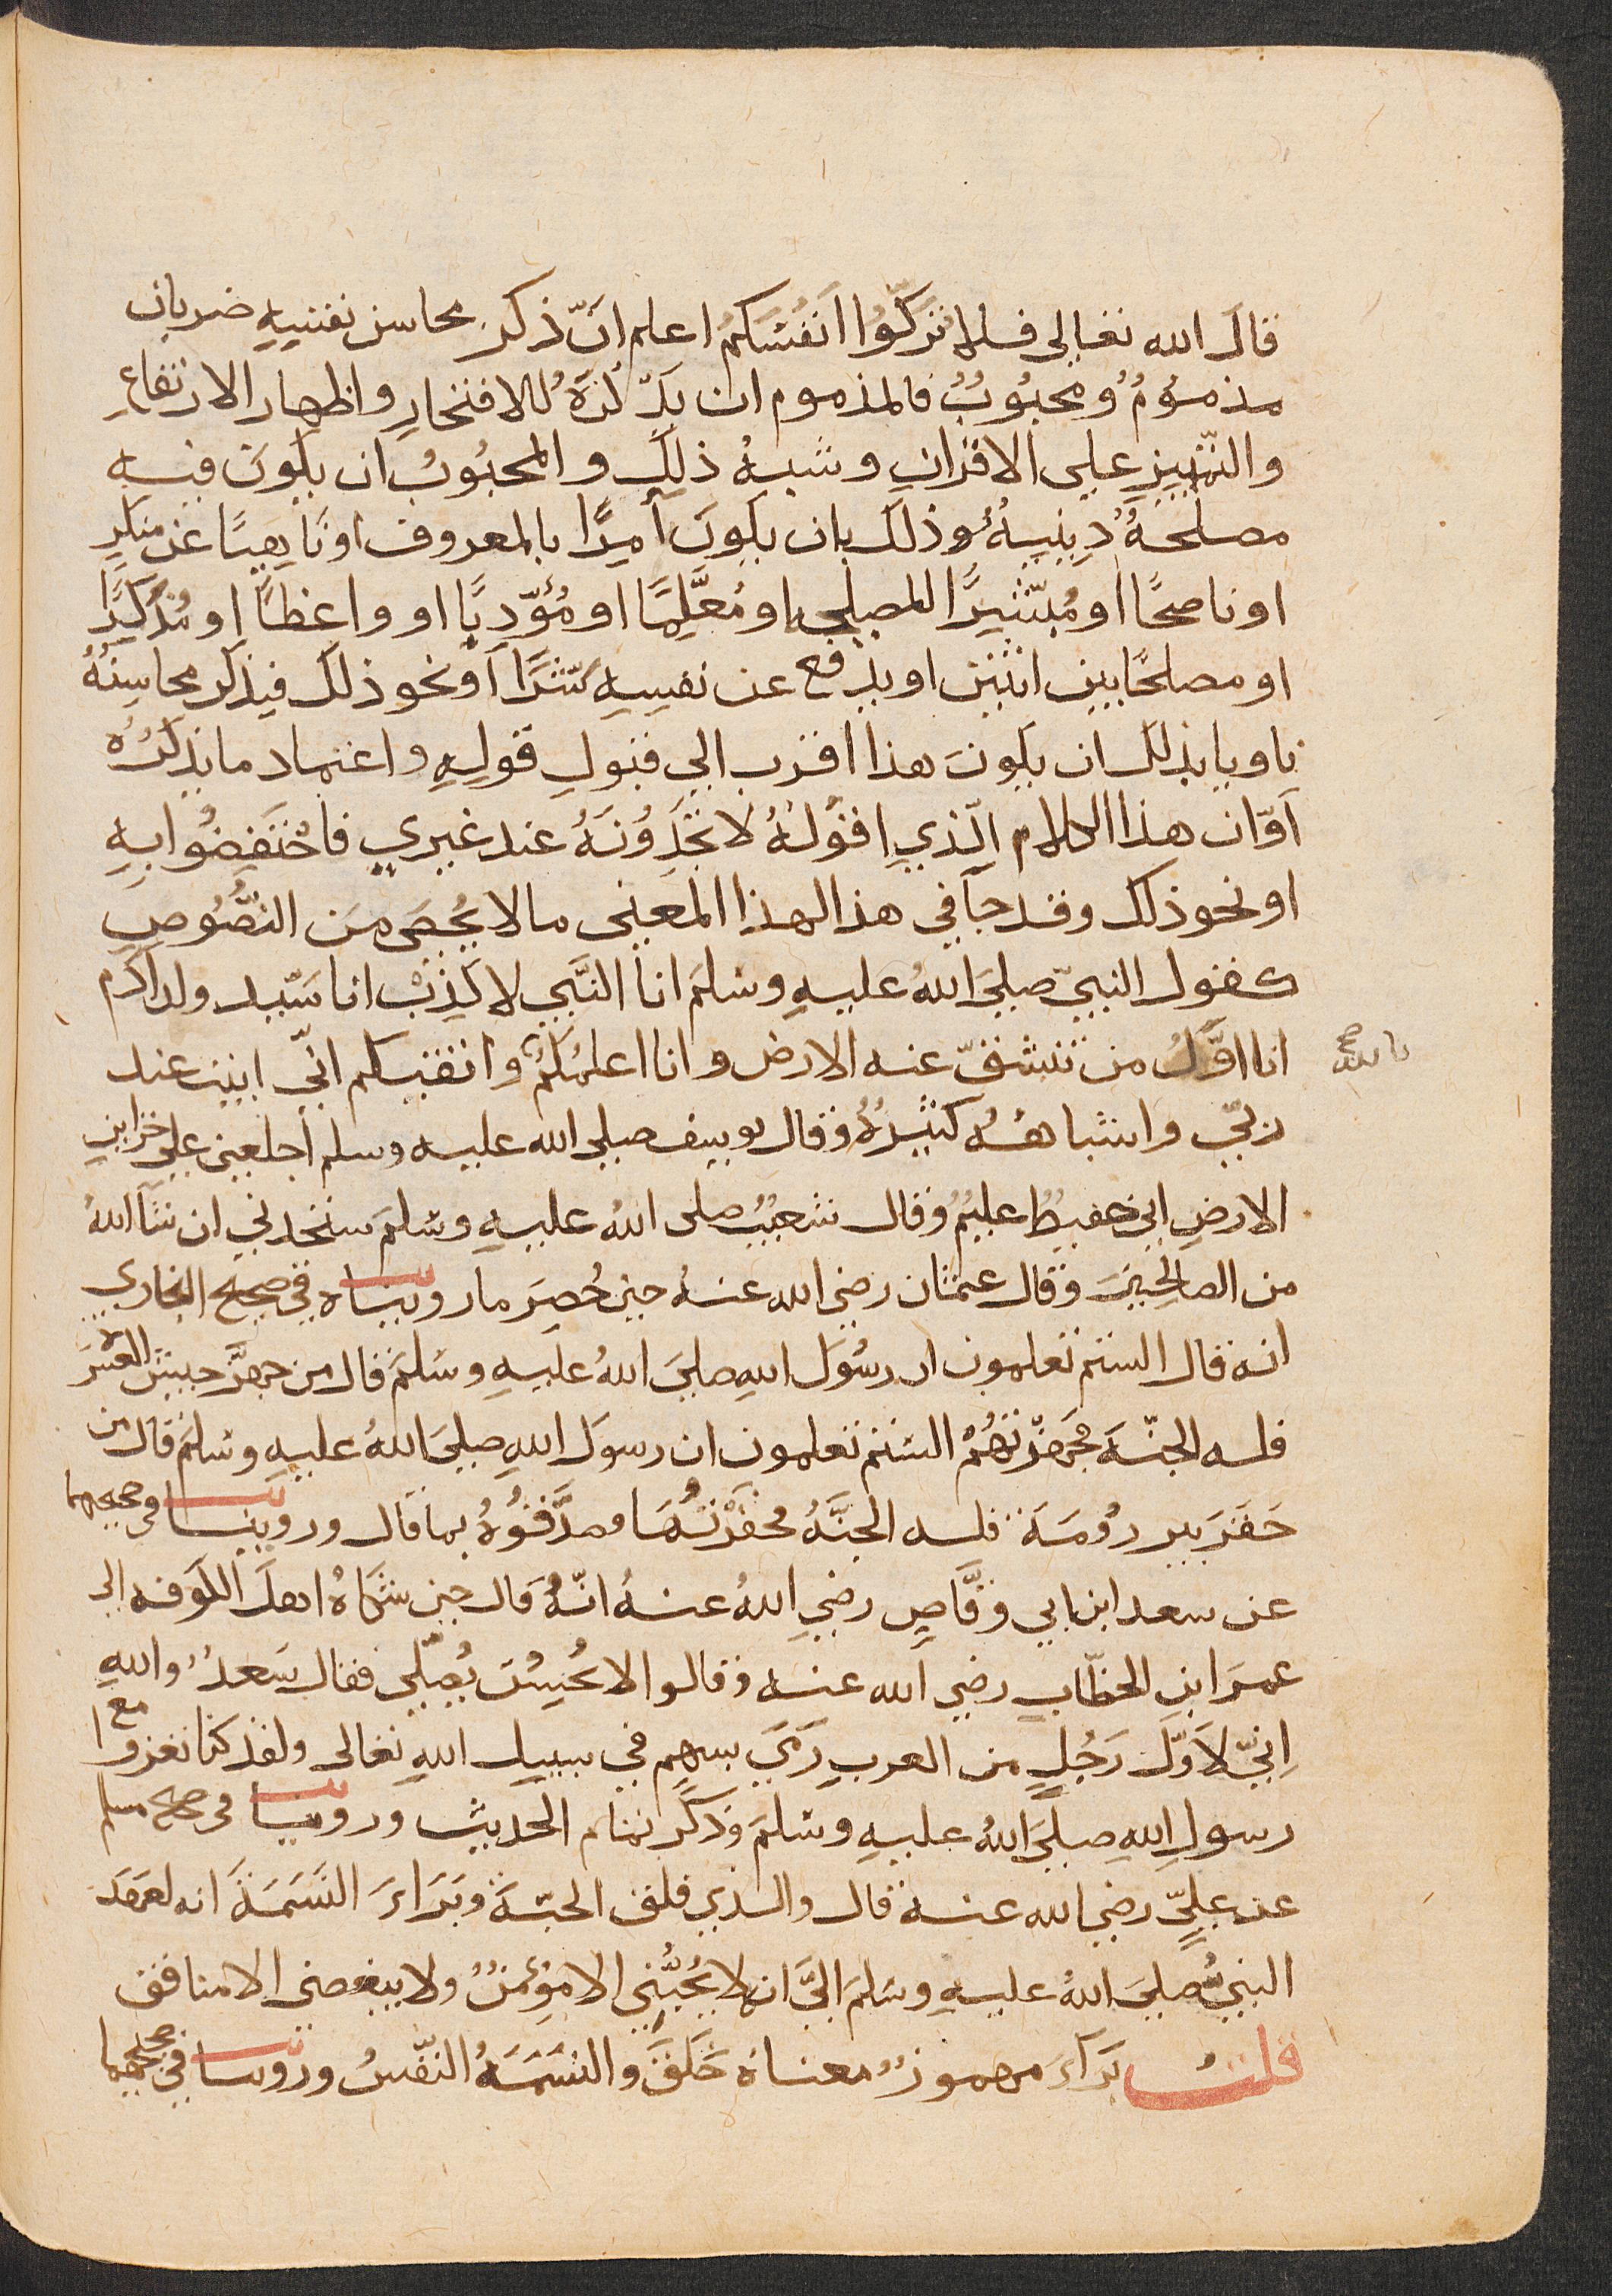 قال الله تعالى فلا تزكّوا انفسكم اعلم انّ ذكر محاسن نفسه ضربان
مذمومٌ ومحبوبٌ فالمذموم ان يذكرَهُ للافتخارِ واظهار الارتفاعِ
والتّميزِ على الاقرانِ وشبهُ ذلك والمحبُوبُ ان يكونَ فيه
مصلحةٌ دِينيةٌ وذلك بان يكونَ آمرًا بالمعروف او ناهيًا عن منكرٍ
او ناصحًا او مُشيرًا المصلحه او مُعلِّمًا او مُؤدبًا او واعظًا او مُذكرًا
او مصلحًا بين اثنين او يدفع عن نفسِهِ شرًّا او نحو ذلك فيذكر محاسِنَهُ
ناويا بذلك ان يكونَ هذا اقرب الي قبولِ قولِهِ واعتماد ما يذكرُهُ
اوّان هذا الكلام الّذي اقولُهُ لا تجدُونَهُ عند غيري فاحتفِضُوا بهِ
او نحو ذلك وقد جآ في هذا لهذا المعنى ما لا يُحصَى منَ النصُّوصِ
كقول النبيّ صليَ اللهُ عليهِ وسلمَ انا النَّبي لا كذبْ انا سَيد ولد آدم
انا اوّلُ من تنشقّ عنه الارض وانا اعلمُكمْ وانقيكم انّي ابيت عند
ربّي واشباههُ كثيرُةٌ وقال يوسف صلى الله عليه وسلم اجلعني على خزاينِ
الارضِ اني حفيظٌ عليمٌ وقال شعيبُ صلى اللهُ عليهِ وسلمَ ستجدني ان شآ اللهُ
من الصالحِينَ وقال عثمان رضي الله عنهُ حين حُصِرَ ما رويناه في صحيح البخاري
انه قال الستم تعلمون ان رسُولَ اللهِ صليَ اللهُ عليهِ وسَلمَ قال من جهزَّ جيش العسرَة
فله الجنّةَ فجهزّتهُمْ الستم تعلمون ان رسولَ اللهِ صليَ اللهُ عليهِ وسلمَ قال من
حَفَرَ بير رُومَةَ فله الجنَّةُ فحفرْتُهَا وصدَّقوُهُ بما قال وروينا في صحيحهما
عن سعد ابن ابي وقَّاصٍ رضي اللهُ عنهُ انّهُ قال حين شكاهُ اهلَ الكوفه الى
عمرَ ابنِ الخطّابِ رضي الله عنه وقالوا لا يُحسِنُ يُصلّي فقال سَعدٌ واللهِ
اِنّي لاَوّلَ رَجُلٍ من العربِ رَمَي بسهمٍ في سبيل اللهِ تعالى ولقد كنا نغزوا مع
رسولِ اللهِ صليَ اللهُ عليهِ وسلمَ وذكر تمام الحديث وروينا في صحيح مسلم
عن عليٍّ رضي الله عنهُ قال والذي فلق الحبّةَ وبَرَاءَ النَسَمَةَ انه لعهدَ
النبيُّ صليَ اللهُ عليهِ وسَلمَ اليَّ انه لا يُحبُّني الا مؤمنٌ ولا يبغضني الا منافق
قلتُ بَرَآءَ مهموزٌ معناهُ خَلَقَ والنسَمَةُ النّفسُ وروينا في صحيحهما